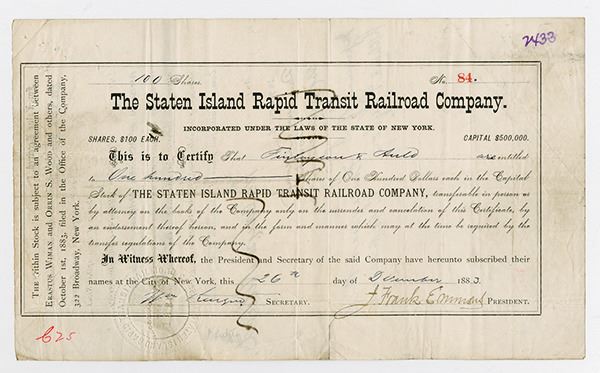 2433
100 Shares.
No. 84.
The Staten Island Rapid Transit Railroad Company.
INCORPORATED UNDER THE LAWS OF THE STATE OF NEW YORK.
SHARES, $100 EACH.
CAPITAL $500,000.
This is to Certify That Finlayson & Auld are entitled
to One hundred Shares of One Hundred Dollars each in the Capital
Stock of THE STATEN ISLAND RAPID TRANSIT RAILROAD COMPANY, transferable in person or
by attorney on the books of the Company only on the surrender and cancelation of this Certificate, by
an endorsement thereof hereon, and in the form and manner which may at the time be required by the
transfer regulations of the Company.
In Witness Whereof, the President and Secretary of the said Company have hereunto subscribed their
names at the City of New York, this 26th day of December 1883.
Wm SECRETARY.
J. Frank Emmons PRESIDENT.
The within Stock is subject to an agreement between
ERASTUS WIMAN and ORRIN S. WOOD and others, dated
October 1st, 1883, filed in the Office of the Company,
322 Broadway, New York.
C25